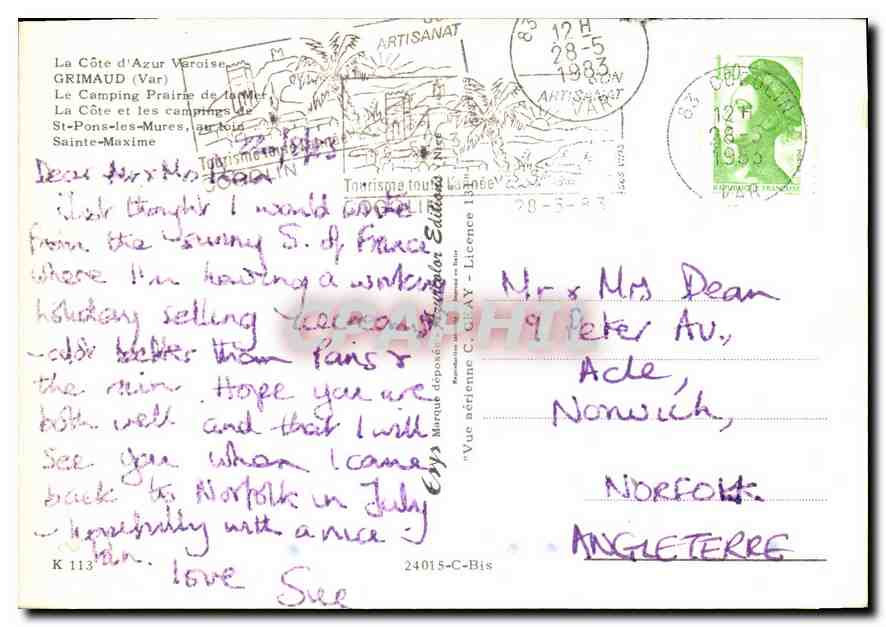 La Côte d'Azur Varoise
GRIMAUD (Var)
Le Camping Prairie de la Mer
La Côte et les campings de
St-Pons-les-Mures, au loin
Sainte-Maxime
Dear Mr & Mrs Dean,
Just thought I would write
from the sunny S. of France
where I'm having a working
holiday selling icecreams
better than Paris &
the rain. Hope you are
both well and that I will
see you when I come
back to Norfolk in July
- hopefully with a nice
tan.
love
Sue
K 113
24015-C-Bis
ARTISANAT
Tourisme toute l'année
COGOLIN
SON
ARTISANAT
Tourisme toute l'année
COGOLIN
28-5-83
83
12 H
28-5
1983
VAR
83 COGOLIN
12 H
28-5
1983
VAR
REPUBLIQUE FRANÇAISE
Esys Marque déposée - Azurcolor Editions - Nice
"Vue aérienne C. GRAY - Licence
Mr & Mrs Dean
9 Peter Av.,
Acle,
Norwich,
NORFOLK
ANGLETERRE
CPAPHIL